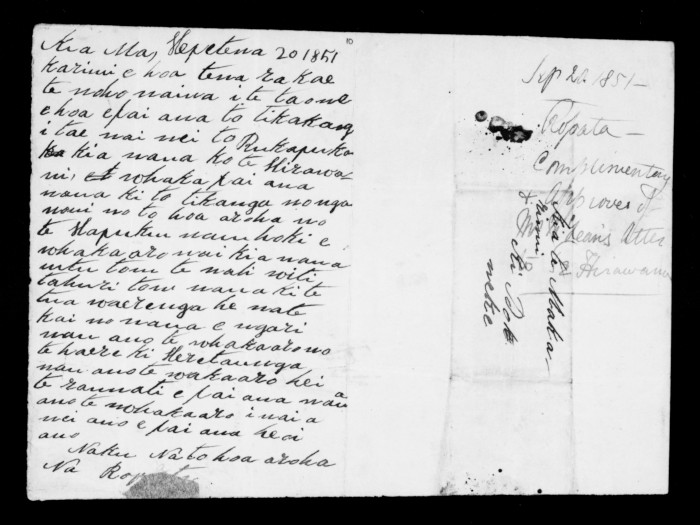 Kia Ma, Hepetema 20 1851
karini e hoa tena ra koe
te noho naiwa i te taone
e hoa e pai ana to tikanga
i tae nai nei to Pukapuka
kia nana ko te Hirawa-
ni, whaka pai ana
nana ki to tikanga no nga
noui no to hoa aroha no
te Hapuku nau hoki e
whakaaro nai kia nana
te nati witi
tahuri tonu nana ki te
tua waerenga he nate
kai no nana e ngari
nau ano te whakaaro no
te haere ki Heretaunga
nau ano te wakaaro hei
te raunati e pai ana nau
ano te whakaaro i nai a
nei ano e pai ana heoi
ano
Naku Na to hoa aroha
Na
10
Sep 20. 1851 -
Ropata -
Complimentary
approves of
Mr McLean's letter
to Hirawanu
Kia te Maka-
rini
Kei Poti
neke